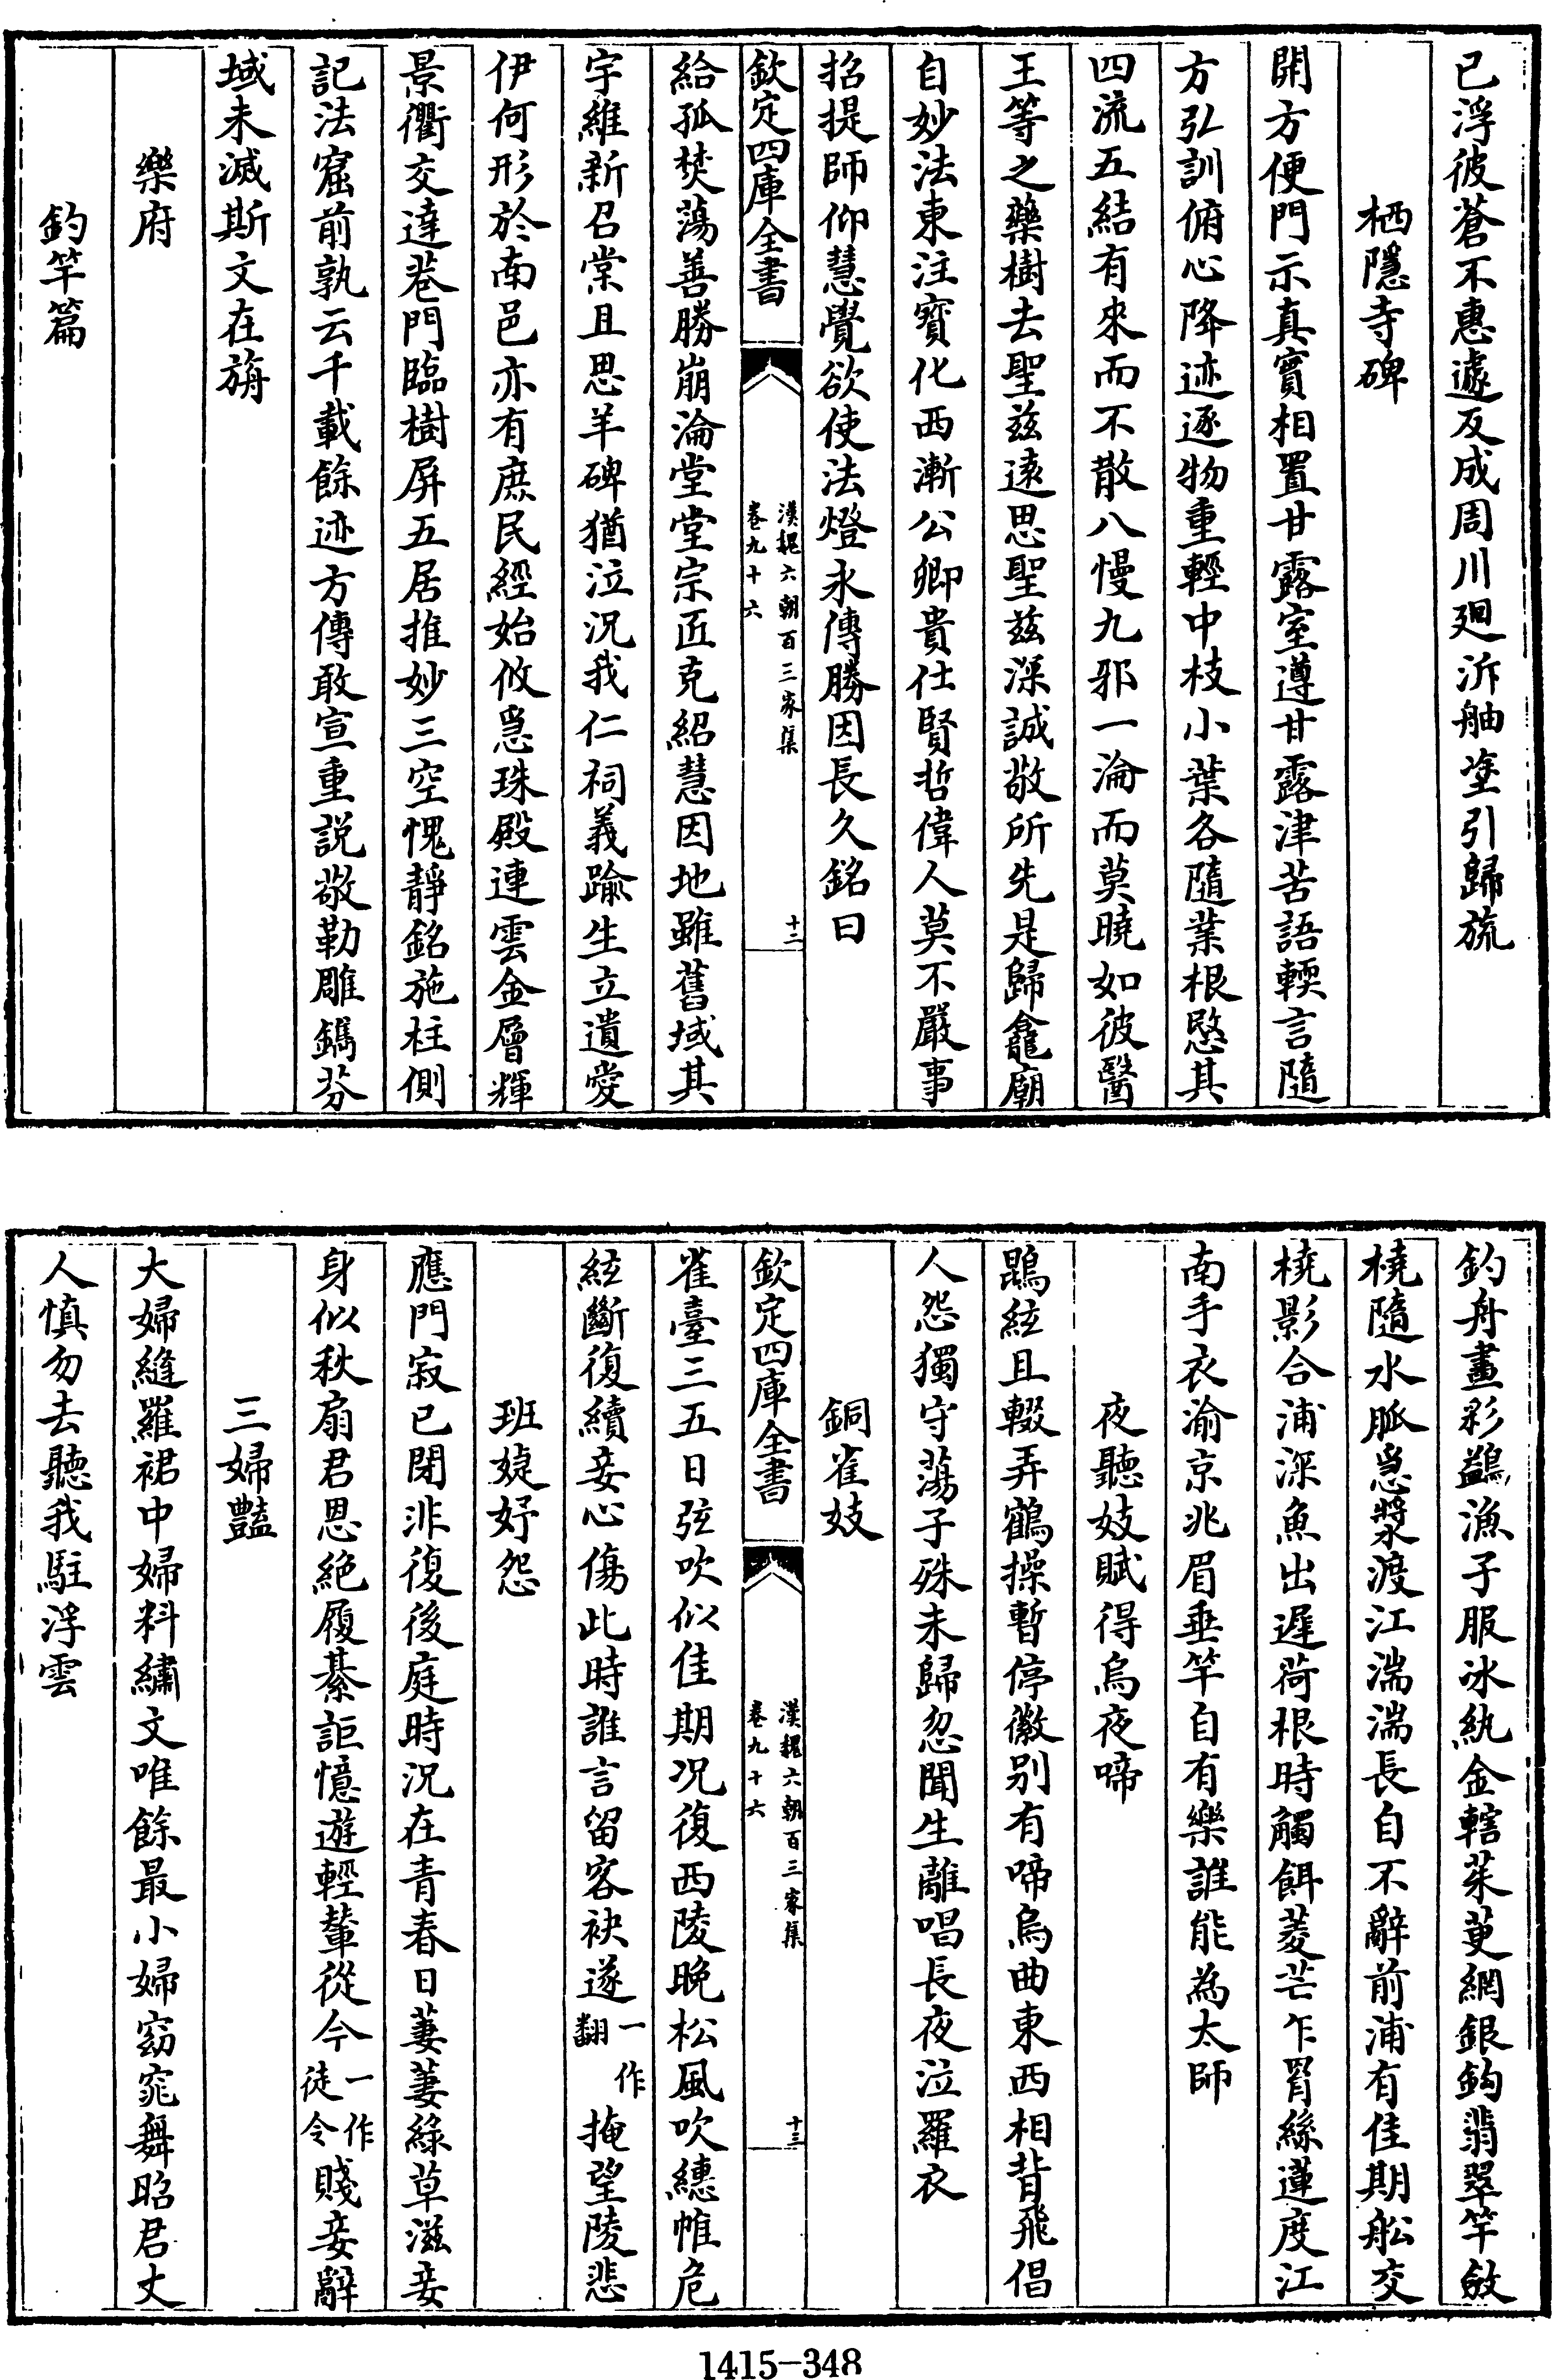 已浮彼蒼不惠遽反成周川廻泝舳塗引歸旒
栖隱寺碑
開方便門示真實相置甘露室遵甘露津苦語輭言隨
方弘訓俯心降迹逐物重輕中枝小葉各隨業根愍其
四流五結有來而不散八慢九邪一淪而莫曉如彼醫
王等之藥樹去聖兹遠思聖兹深誠敬所先是歸龕廟
自妙法東注寳化西漸公卿貴仕賢哲偉人莫不嚴事
招提師仰慧覺欲使法燈永傳勝因長久銘曰
欽定四庫全書
漢魏六朝百三家集
卷九十六
十二
給孤焚蕩善勝崩淪堂堂宗匠克紹慧因地雖舊域其
宇維新召棠且思羊碑猶泣況我仁祠義踰生立遺愛
伊何形於南邑亦有庶民經始攸爲珠殿連雲金層輝
景衢交達巷門臨樹屏五居推妙三空愧靜銘施柱側
記法窟前孰云千載餘迹方傳敢宣重説敬勒雕鐫芬
域未滅斯文在旃
樂府
釣竿篇
釣舟畫彩鷁漁子服冰紈金轄茱萸網銀鈎翡翠竿斂
橈隨水脈急槳渡江湍湍長自不辭前浦有佳期船交
橈影合浦深魚出遲荷根時觸餌菱芒乍罥絲蓮度江
南手衣渝京兆眉垂竿自有樂誰能為太師
夜聽妓賦得烏夜啼
鵾絃且輟弄鶴操暫停徽别有啼烏曲東西相背飛倡
人怨獨守蕩子殊未歸忽聞生離唱長夜泣羅衣
銅雀妓
欽定四庫全書
漢魏六朝百三家集
卷九十六
十三
雀臺三五日弦吹似佳期况復西陵晚松風吹繐帷危
絃斷復續妾心傷此時誰言留客袂遂一作翻掩望陵悲
班婕妤怨
應門寂已閉非復後庭時況在青春日萋萋緑草滋妾
身似秋扇君恩絶履綦詎憶遊輕輦從今一作徒令賤妾辭
三婦豔
大婦縫羅裙中婦料繡文唯餘最小婦窈窕舞昭君丈
人慎勿去聽我駐浮雲
1415-348